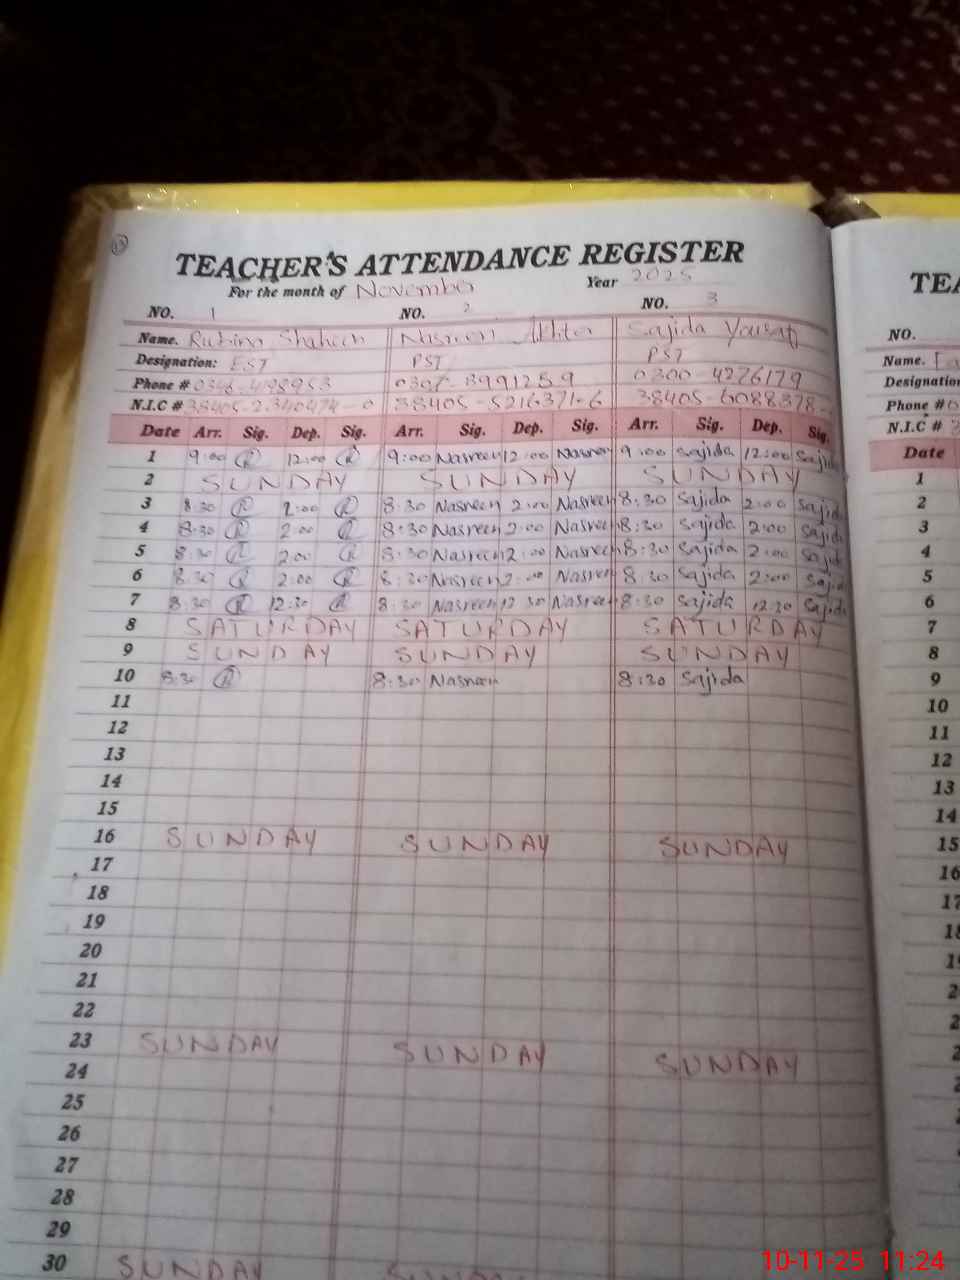 13
TEACHER'S ATTENDANCE REGISTER
For the month of November Year 2025
NO. 1 NO. 2 NO. 3
Name. Rubina Shaheen Nasreen Akhtar Sajida Yousaf
Designation: EST PST PST
Phone # 0300-4276179
N.I.C #
Date Arr. Sig. Dep. Sig. Arr. Sig. Dep. Sig. Arr. Sig. Dep. Sig.
1 9:00 R 12:00 R 9:00 Nasreen 12:00 Nasreen 9:00 Sajida 12:00 Sajida
2 SUNDAY SUNDAY SUNDAY
3 8:30 R 2:00 R 8:30 Nasreen 2:00 Nasreen 8:30 Sajida 2:00 Sajida
4 8:30 R 2:00 R 8:30 Nasreen 2:00 Nasreen 8:30 Sajida 2:00 Sajida
5 8:30 R 2:00 R 8:30 Nasreen 2:00 Nasreen 8:30 Sajida 2:00 Sajida
6 8:30 R 2:00 R 8:30 Nasreen 2:00 Nasreen 8:30 Sajida 2:00 Sajida
7 8:30 R 12:30 R 8:30 Nasreen 12:30 Nasreen 8:30 Sajida 12:30 Sajida
8 SATURDAY SATURDAY SATURDAY
9 SUNDAY SUNDAY SUNDAY
10 8:30 R 8:30 Nasreen 8:30 Sajida
11
12
13
14
15
16 SUNDAY SUNDAY SUNDAY
17
18
19
20
21
22
23 SUNDAY SUNDAY SUNDAY
24
25
26
27
28
29
30 SUNDAY SUNDAY
TEA
NO.
Name.
Designation
Phone #
N.I.C #
Date
1
2
3
4
5
6
7
8
9
10
11
12
13
14
15
16
17
10-11-25 11:24